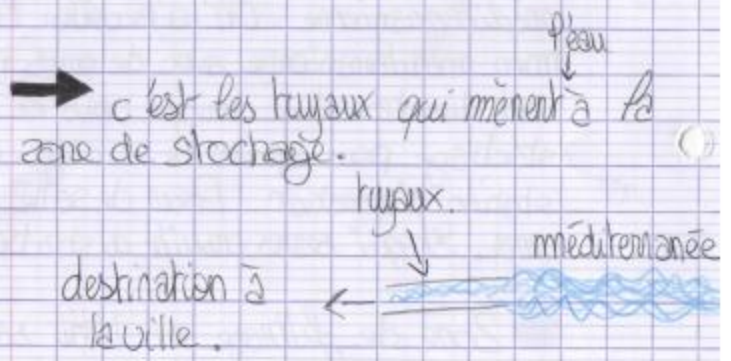 l'eau
c'est les tuyaux qui mènent à la
zone de stochage.
tuyaux.
méditerranée
destination à
la ville.